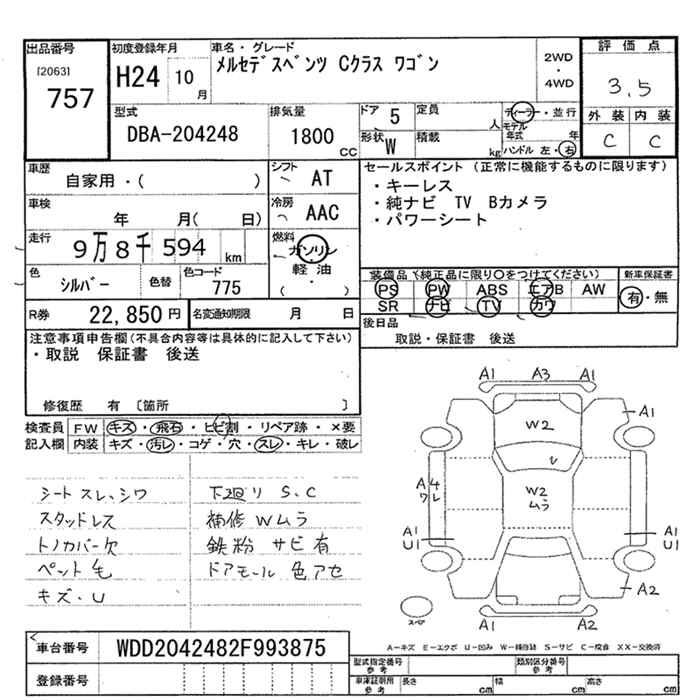 出品番号
[2063]
757
初度登録年月
H24 10月
車名・グレード
メルセデスベンツ Cクラス ワゴン
2WD
・
4WD
評価点
3.5
外装 内装
C C
型式
DBA-204248
排気量
1800 CC
ドア 5
定員 人
形状 W
積載 kg
ディーラー・並行
モデル年式 年
ハンドル 左・右
車歴
自家用・( )
シフト AT
車検
年 月( 日)
冷房 AAC
走行
9万8千594 km
燃料
ガソリン
軽油
( )
色
シルバー
色替
色コード
775
R券 22,850円
名変通知期限 月 日
セールスポイント(正常に機能するものに限ります)
・キーレス
・純ナビ TV Bカメラ
・パワーシート
装備品(純正品に限り○をつけてください)
新車保証書
PS PW ABS エアB AW
有・無
SR ナビ TV カワ
後日品
取説・保証書 後送
注意事項申告欄(不具合内容等は具体的に記入して下さい)
・取説 保証書 後送
修復歴 有 〔箇所 〕
検査員記入欄
FW キズ・飛石・ヒビ割・リペア跡・×要
内装 キズ・汚レ・コゲ・穴・スレ・キレ・破レ
シートスレ、シワ
スタッドレス
トノカバー欠
ペット毛
キズ・U
下廻り S、C
補修Wムラ
鉄粉 サビ有
ドアモール 色アセ
A1 A3 A1
A1
W2
A4
ワレ
W2
ムラ
A1
U1
A1
U1
A2
A1 A2
スペア
A-キズ E-エクボ U-凹み W-補修跡 S-サビ C-腐食 XX-交換済
車台番号
WDD2042482F993875
登録番号
型式指定番号
参考
類別区分番号
参考
車庫証明用
参考
長さ cm
幅 cm
高さ cm